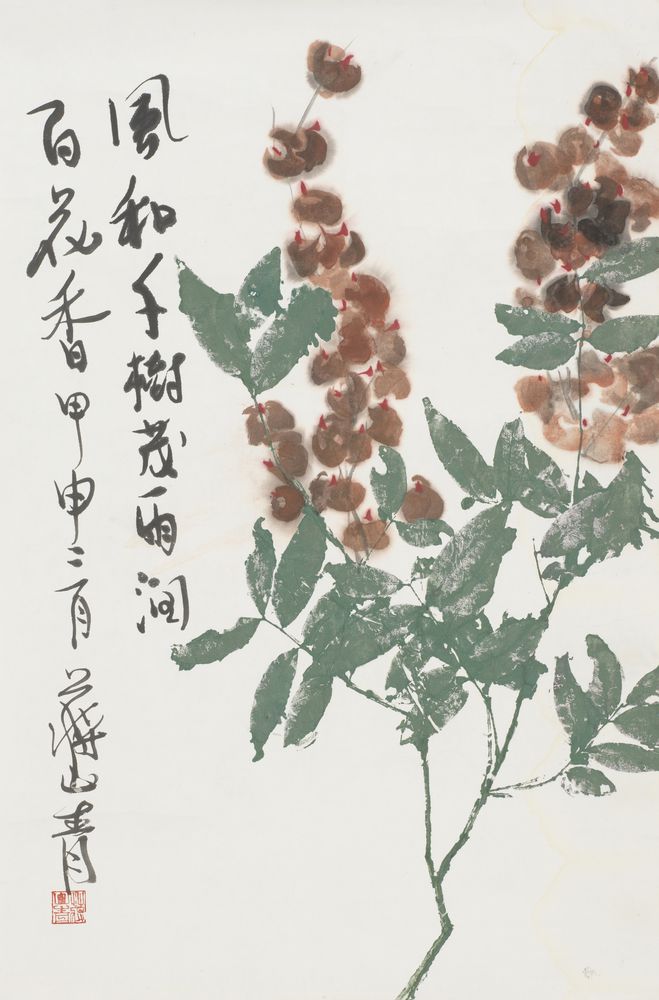 風和千樹茂雨潤
百花香甲申二月